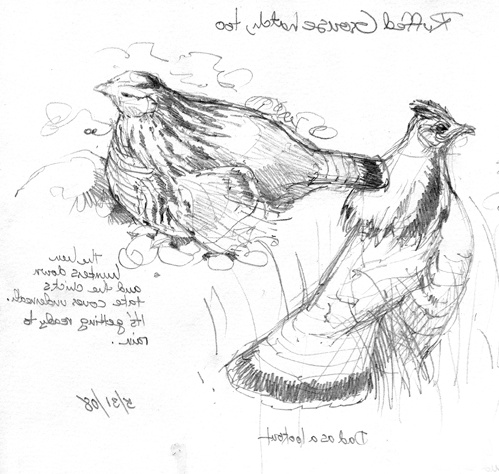 Ruffed Grouse hatch, too
the hen
hunkers down
and the chicks
take cover underneath.
It's getting ready to
rain.
5/31/08
Dad as a lookout